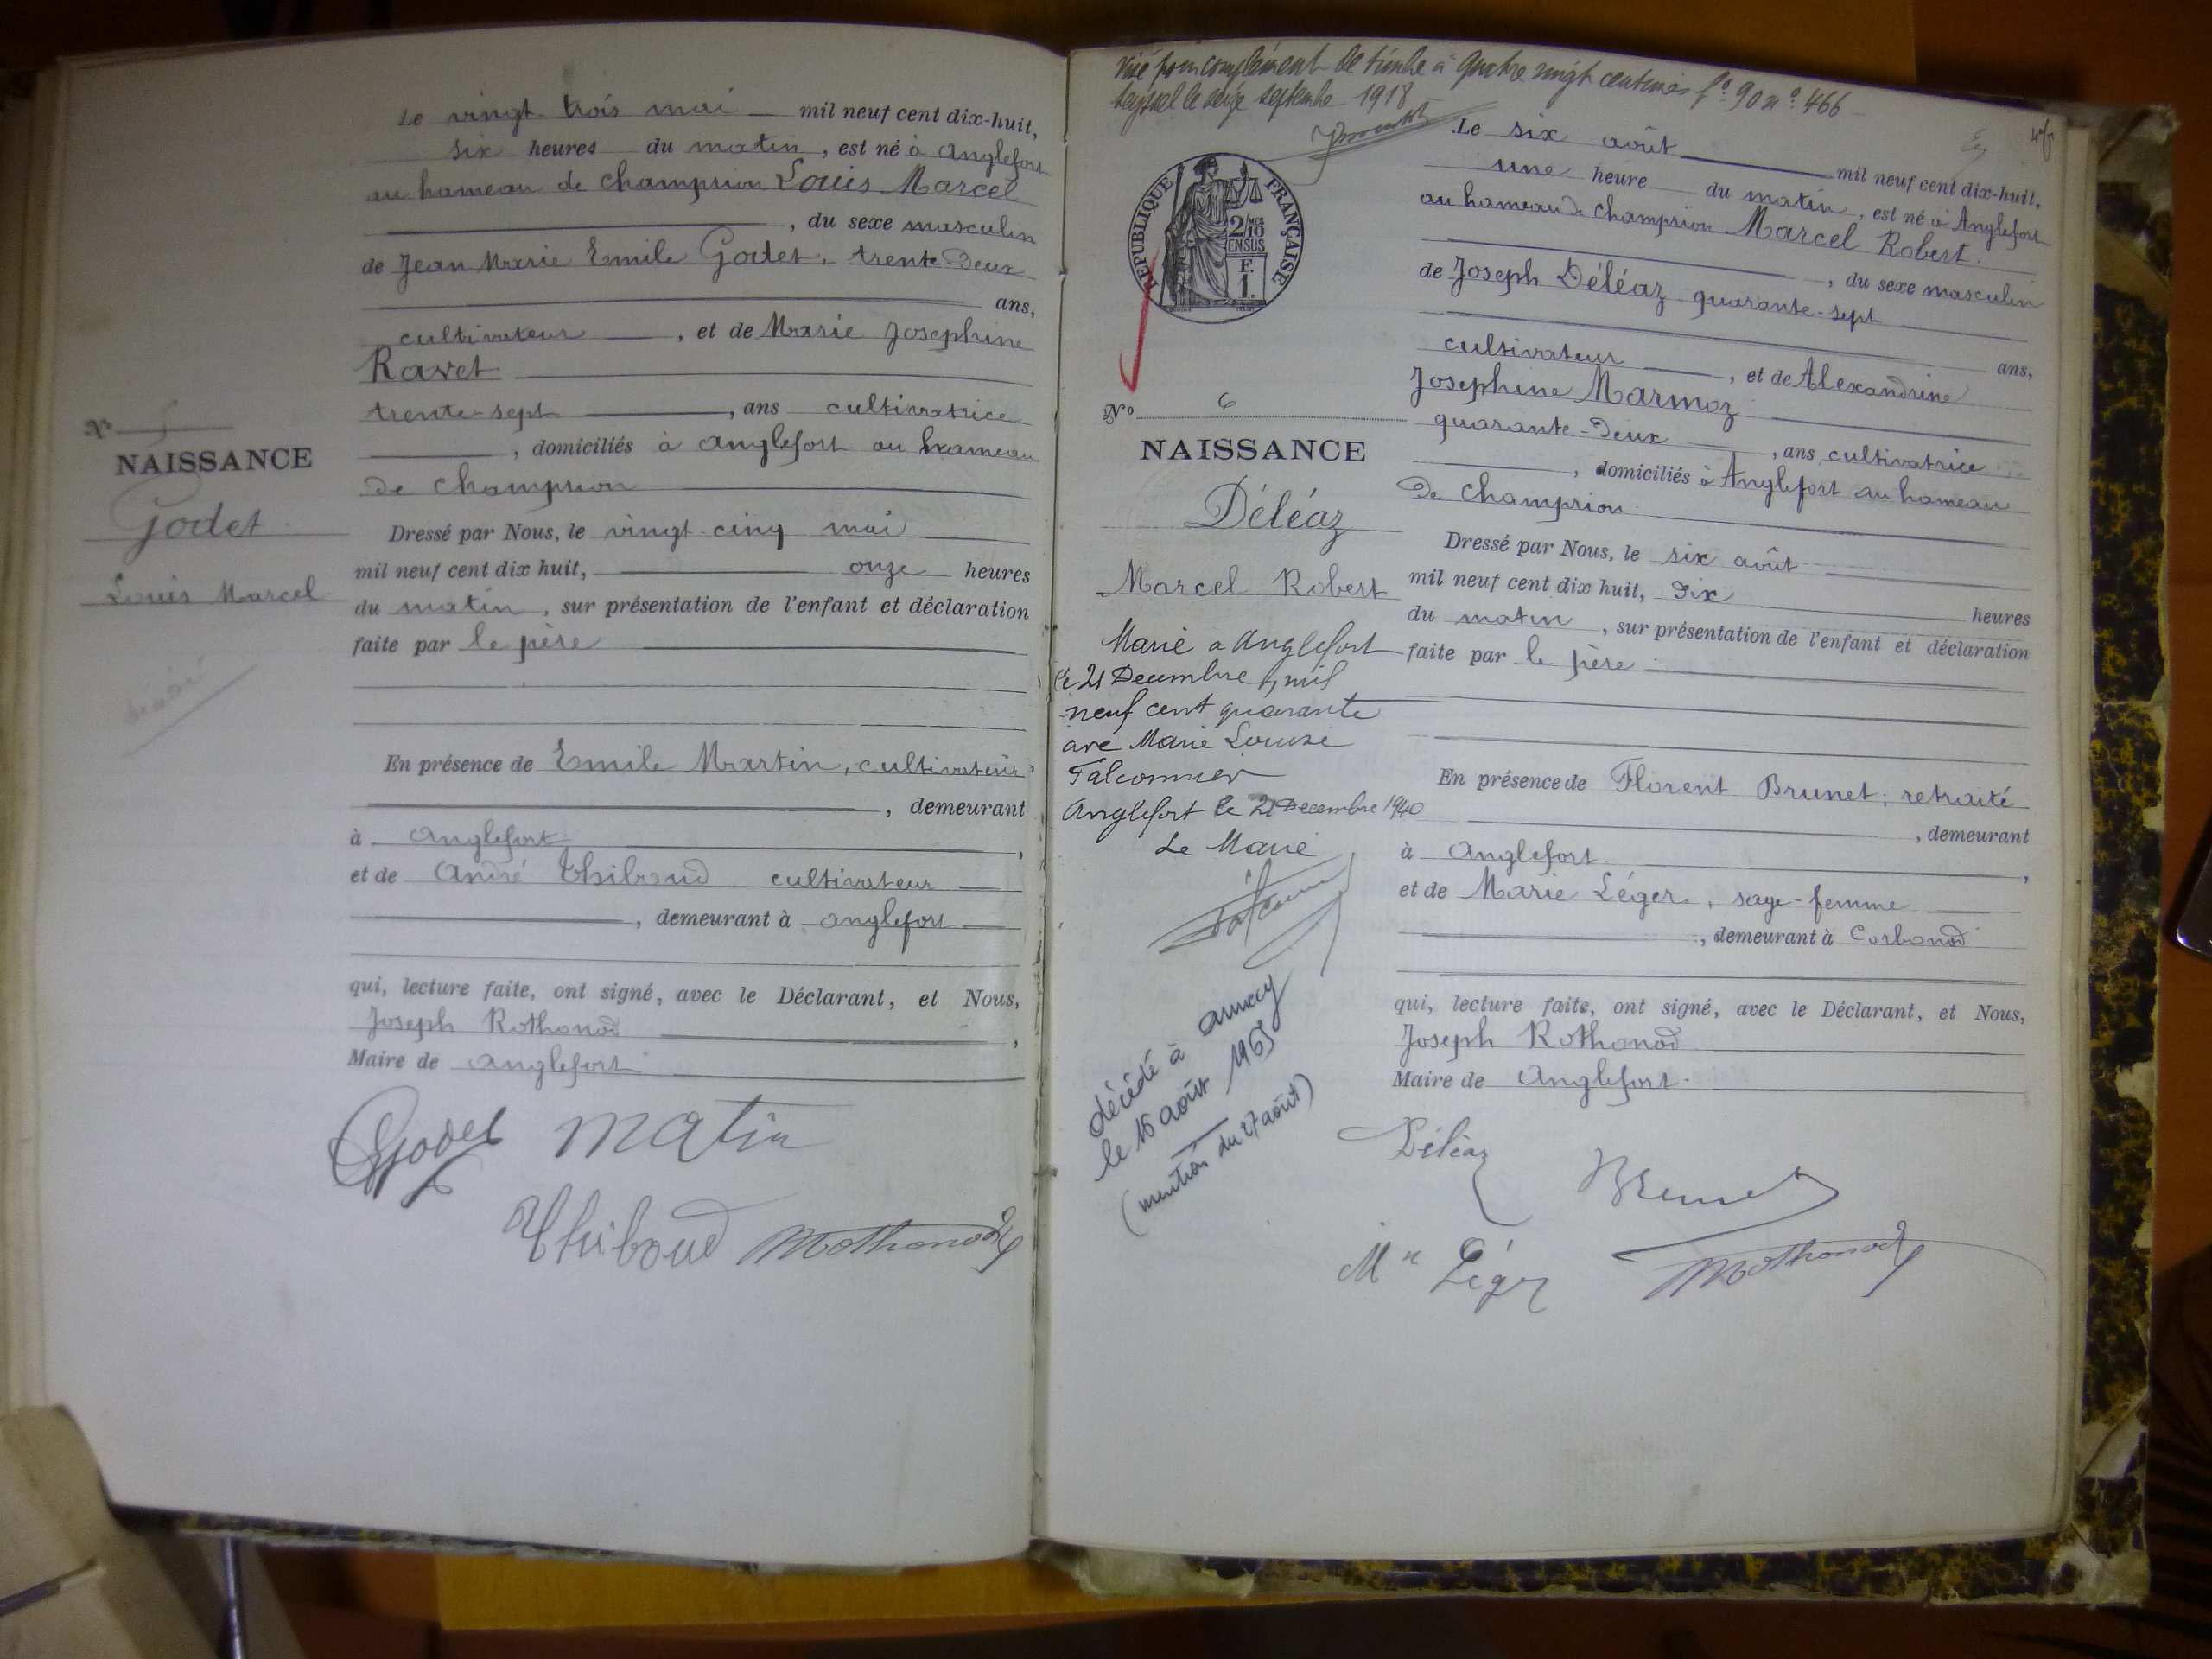 Le vingt trois mai mil neuf cent dix-huit,
six heures du matin, est né à Anglefort
au hameau de Champrion Louis Marcel
, du sexe masculin
de Jean Marie Emile Godet, trente-deux
ans,
cultivateur, et de Marie Josephine
Ravet
trente-sept, ans cultivatrice
, domiciliés à Anglefort au hameau
de Champrion
N° 5
NAISSANCE
Godet
Louis Marcel
Dressé par Nous, le vingt-cinq mai
mil neuf cent dix huit, onze heures
du matin, sur présentation de l'enfant et déclaration
faite par le père
En présence de Emile Martin, cultivateur
, demeurant
à Anglefort,
et de André Thiboud cultivateur
, demeurant à Anglefort
qui, lecture faite, ont signé, avec le Déclarant, et Nous,
Joseph Rothonod,
Maire de Anglefort
Godet Matin
Thiboud Rothonod
Visé pour complément de timbre à quatre vingt centimes f° 90 n° 466
Seyssel le seize septembre 1918
RÉPUBLIQUE FRANÇAISE
2/10
EN SUS
F.
1.
N° 6
NAISSANCE
Déléaz
Marcel Robert
Marié a Anglefort
le 21 Decembre, mil
neuf cent quarante
ave Marie Louise
Falconnier
Anglefort le 21 Decembre 1940
Le Maire
décédé à Annecy
le 16 août 1965
(mention du 27 août)
Le six août mil neuf cent dix-huit,
une heure du matin, est né à Anglefort
au hameau de Champrion Marcel Robert
, du sexe masculin
de Joseph Déléaz quarante-sept
ans,
cultivateur, et de Alexandrine
Josephine Marmoz
quarante-deux, ans cultivatrice
, domiciliés à Anglefort au hameau
de Champrion
Dressé par Nous, le six août
mil neuf cent dix huit, dix heures
du matin, sur présentation de l'enfant et déclaration
faite par le père
En présence de Florent Brunet, retraité
, demeurant
à Anglefort,
et de Marie Léger, sage-femme
, demeurant à Corbonod
qui, lecture faite, ont signé, avec le Déclarant, et Nous,
Joseph Rothonod
Maire de Anglefort
Déléaz Brunet
Mie Léger Rothonod